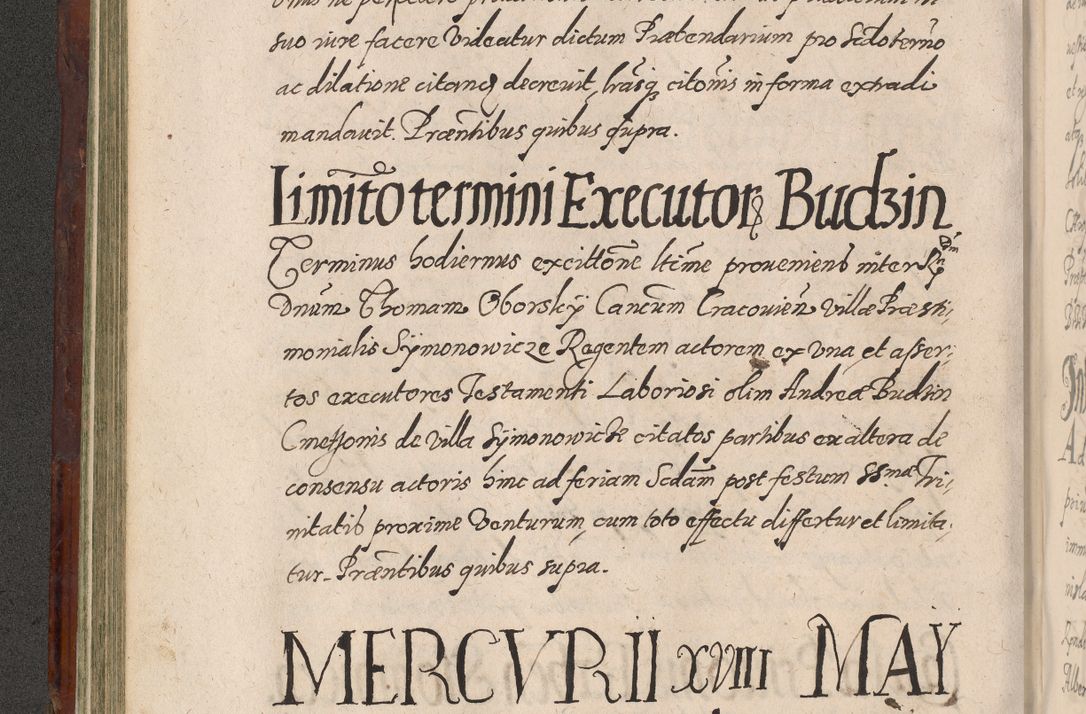 suo iure facere videatur dictum Præbendarium pro scdo termo
ac dilatione citand decrevit, lrasq citonis in forma extradi
mandavit. Præntibus quibus supra.
Limitto termini Executorꝝ Budzin
Terminus hodiernus ex cittone ltime proveniens inter
Dnum Thomam Oborsky Cancum Cracovien villæ Præsti,
monialis Symonowicze Regentem actorem ex una et asser,
tos executores Testamenti Laboriosi olim Andreæ Budzin
Cmetsonis de villa Symonowicze citatos partibus ex altera de
consensu actoris hinc ad feriam Scdam post festum SSmæ Tri,
nitatis proxime venturum, cum toto effectu differtur et limita,
tur. Præntibus quibus supra.
MERCVRII XVIII MAY